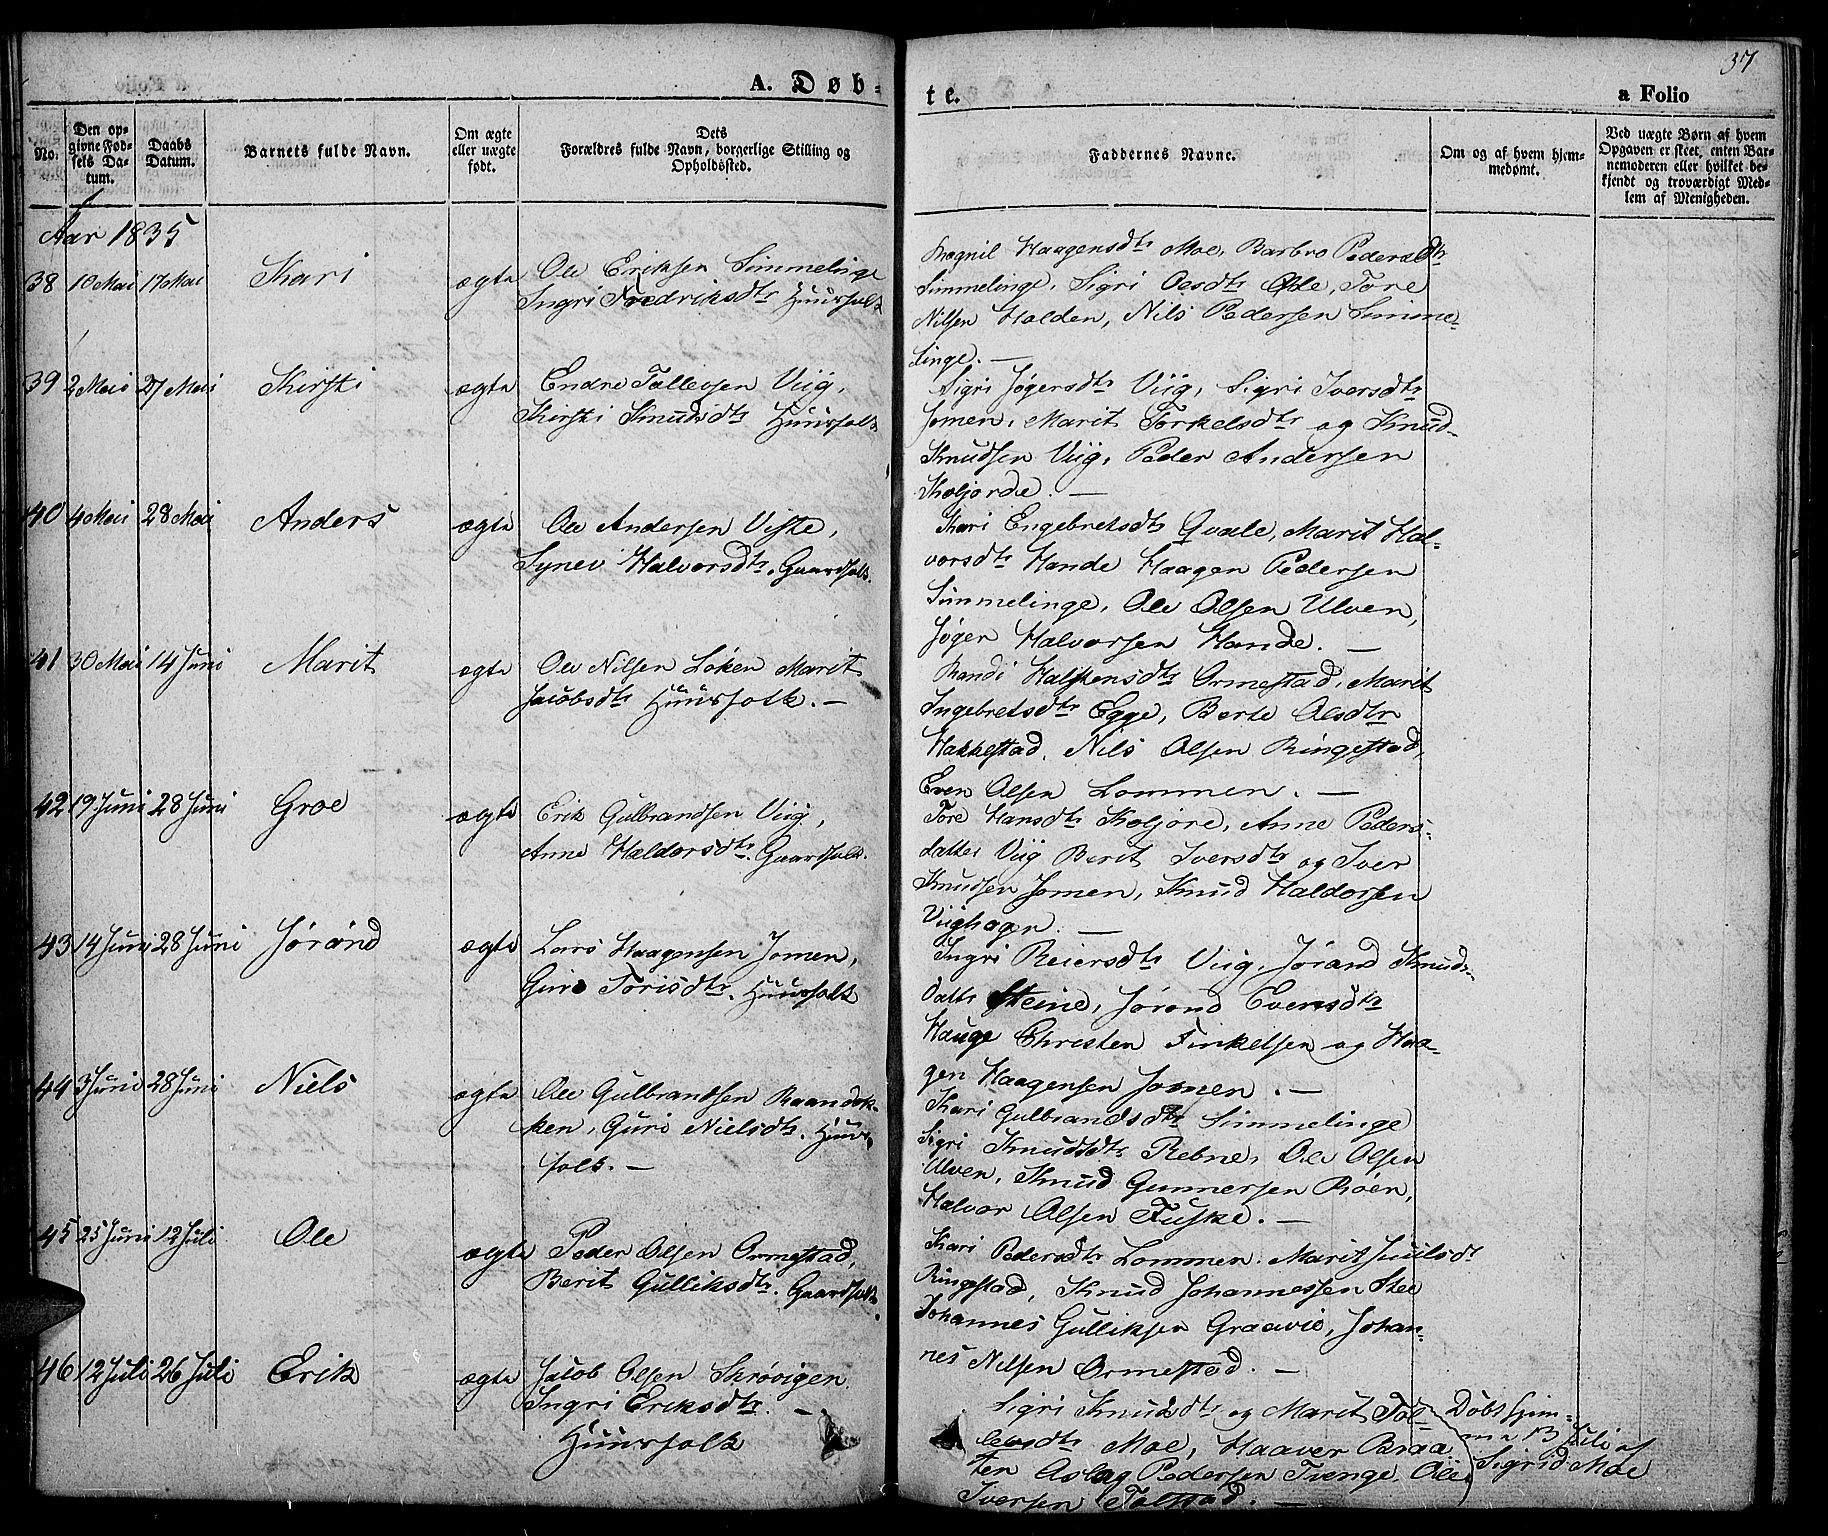 37
A. Døb-
te.
a Folio
No.
Den op-
givne Fød-
sels Da-
tum.
Daabs
Datum.
Barnets fulde Navn.
Om ægte
eller uægte
født.
Dets
Forældres fulde Navn, borgerlige Stilling og
Opholdssted.
Faddernes Navne.
Om og af hvem hjem-
medømt.
Ved uægte Børn af hvem
Opgaven er skeet, enten Bar-
nemoderen eller hvilket be-
kjendt og troværdigt Med-
lem af Menigheden.
Aar 1835
38 10 Mai 17 Mai Kari ægte
Ole Eriksen Simmelinge
Ingri Fredriksdtr Huusfolk
Haagensdtr Moe, Barbro Pedersdtr
Simmelinge, Sigri Olesdtr Øde, Tore
Nilsen Halden, Nils Pedersen Simme-
linge. —
39 2 Mai 27 Mai Kirsti ægte
Endre Tollevsen Viig,
Kirsti Knudsdtr Huusfolk
Sigri Jøgersdtr Viig, Sigri Iversdtr
Jomen, Marit Torkelsdtr og Knud
Knudsen Viig, Peder Andersen
Koljorde. —
40 4 Mai 28 Mai Anders ægte
Ole Andersen Viste,
Synev Halvorsdtr. Gaardfolk.
Kari Engebretsdtr Qvale, Marit Hal-
vorsdtr Hande Haagen Pedersen
Simmelinge, Ole Olsen Ulven,
Jøger Halvorsen Hande. —
41 30 Mai 14 Juni Marit ægte
Ole Nilsen Løken Marit
Jacobsdtr Huusfolk. —
Randi Halstensdtr Ormestad, Marit
Ingebretsdtr Egge, Berte Olesdtr
Hakkestad, Nils Olsen Ringestad,
Even Olsen Lommen. —
42 19 Juni 28 Juni Groe ægte
Erik Gulbrandsen Viig,
Anne Haldorsdtr. Gaardfolk.
Tore Hansdtr Koljore, Anne Peders-
datter Viig Berit Iversdtr og Iver
Knudsen Jomen, Knud Haldorsen
Viighagen. —
43 14 Juni 28 Juni Jørånd ægte
Lars Haagensen Jomen,
Guro Torisdtr. Huusfolk
Ingri Reiersdtr Viig, Jørand Knuds-
datter Steine, Jørond Evensdtr
Hauge Christen Finkelsen og Haa-
gen Haagensen Jomen. —
44 3 Juni 28 Juni Niels ægte
Ole Gulbrandsen Raandok-
ken, Guri Nielsdtr. Huus-
folk. —
Kari Gulbrandsdtr Simmelinge
Sigri Knudsdtr Rebne, Ole Olsen
Ulven, Knud Gunnersen Røen,
Halvor Olsen Fuske. —
45 25 Juni 12 Juli Ole ægte
Peder Olsen Ormestad,
Berit Gulliksdtr. Gaardfolk.
Kari Pedersdtr Lommen. Marit Juulsdtr
Ringestad, Knud Johannessen Stee
Johannes Gulliksen Graavie, Johan-
nes Nilsen Ormestad. —
46 12 Juli 26 Juli Erik ægte
Jacob Olsen Skrøvigen
Ingri Eriksdtr. —
Huusfolk
Sigri Knudsdtr og Marit Tol-
levsdtr Moe, Haaver Braa
ten Aslag Pedersen Tvenge, Ole
Iversen Tolstad. —
Døbt hjem-
me 13 Juli af
Sigrid Moe